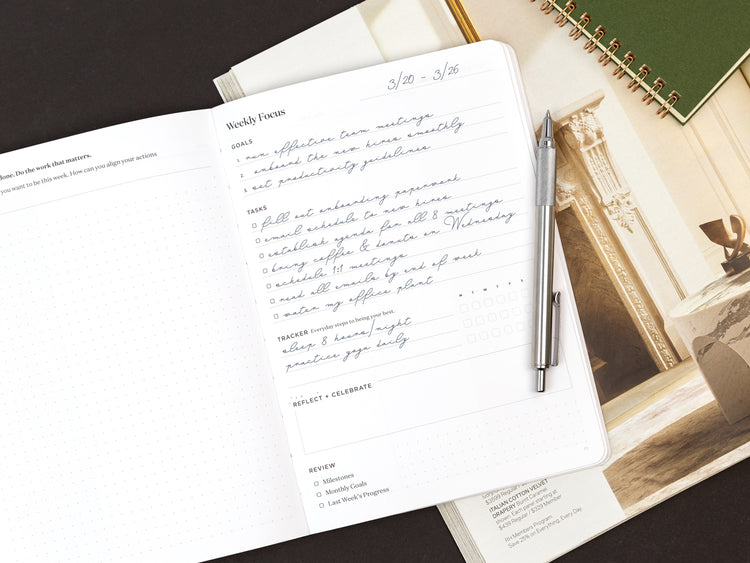 done. Do the work that matters.
you want to be this week. How can you align your actions
3/20 - 3/26
Weekly Focus
GOALS
1. run effective team meetings
2. onboard the new hires smoothly
3. set productivity guidelines
TASKS
fill out onboarding paperwork
email schedule to new hires
establish agenda for all 8 meetings
bring coffee & donuts on Wednesday
schedule 1:1 meetings
read all emails by end of week
water my office plant
TRACKER Everyday steps to being your best.
M T W T F S
sleep 8 hours/night
practice yoga daily
REFLECT + CELEBRATE
REVIEW
Milestones
Monthly Goals
Last Week's Progress
ITALIAN COTTON VELVET
DRAPERY Burnt Caramel
shown. Each panel starting at
$439 Regular / $329 Member
RH Members Program
Save 25% on Everything, Every Day.